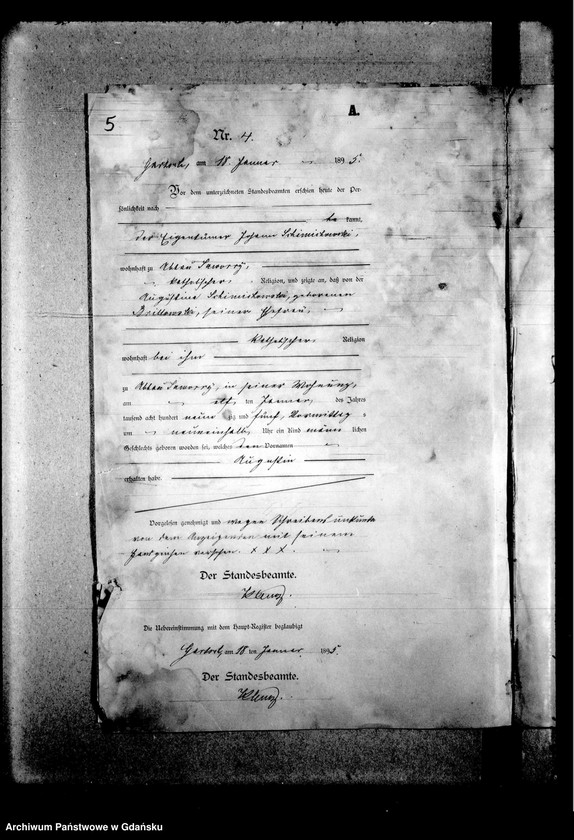 A.
5
Nr. 4.
am 18. Januar 1895.
Vor dem unterzeichneten Standesbeamten erschien heute der Per-
sönlichkeit nach
be kannt,
der Eigentümer Johann
wohnhaft zu Abbau Jaworry,
katholischer Religion, und zeigte an, daß von der
Augustine geborenen
seiner Ehefrau,
katholischer Religion
wohnhaft bei ihm
zu Abbau Jaworry, in seiner Wohnung,
am elf ten Januar, des Jahres
tausend acht hundert neun zig und fünf, Vormittag s
um neuneinhalb Uhr ein Kind männ lichen
Geschlechts geboren worden sei, welches den Vornamen
Augustin
erhalten habe.
Vorgelesen, genehmigt und wegen Schreibensunkunde
von dem Anzeigenden mit seinem
Handzeichen versehen. x x x.
Der Standesbeamte.
Die Uebereinstimmung mit dem Haupt-Register beglaubigt
am 18 ten Januar 1895.
Der Standesbeamte.
Archiwum Państwowe w Gdańsku